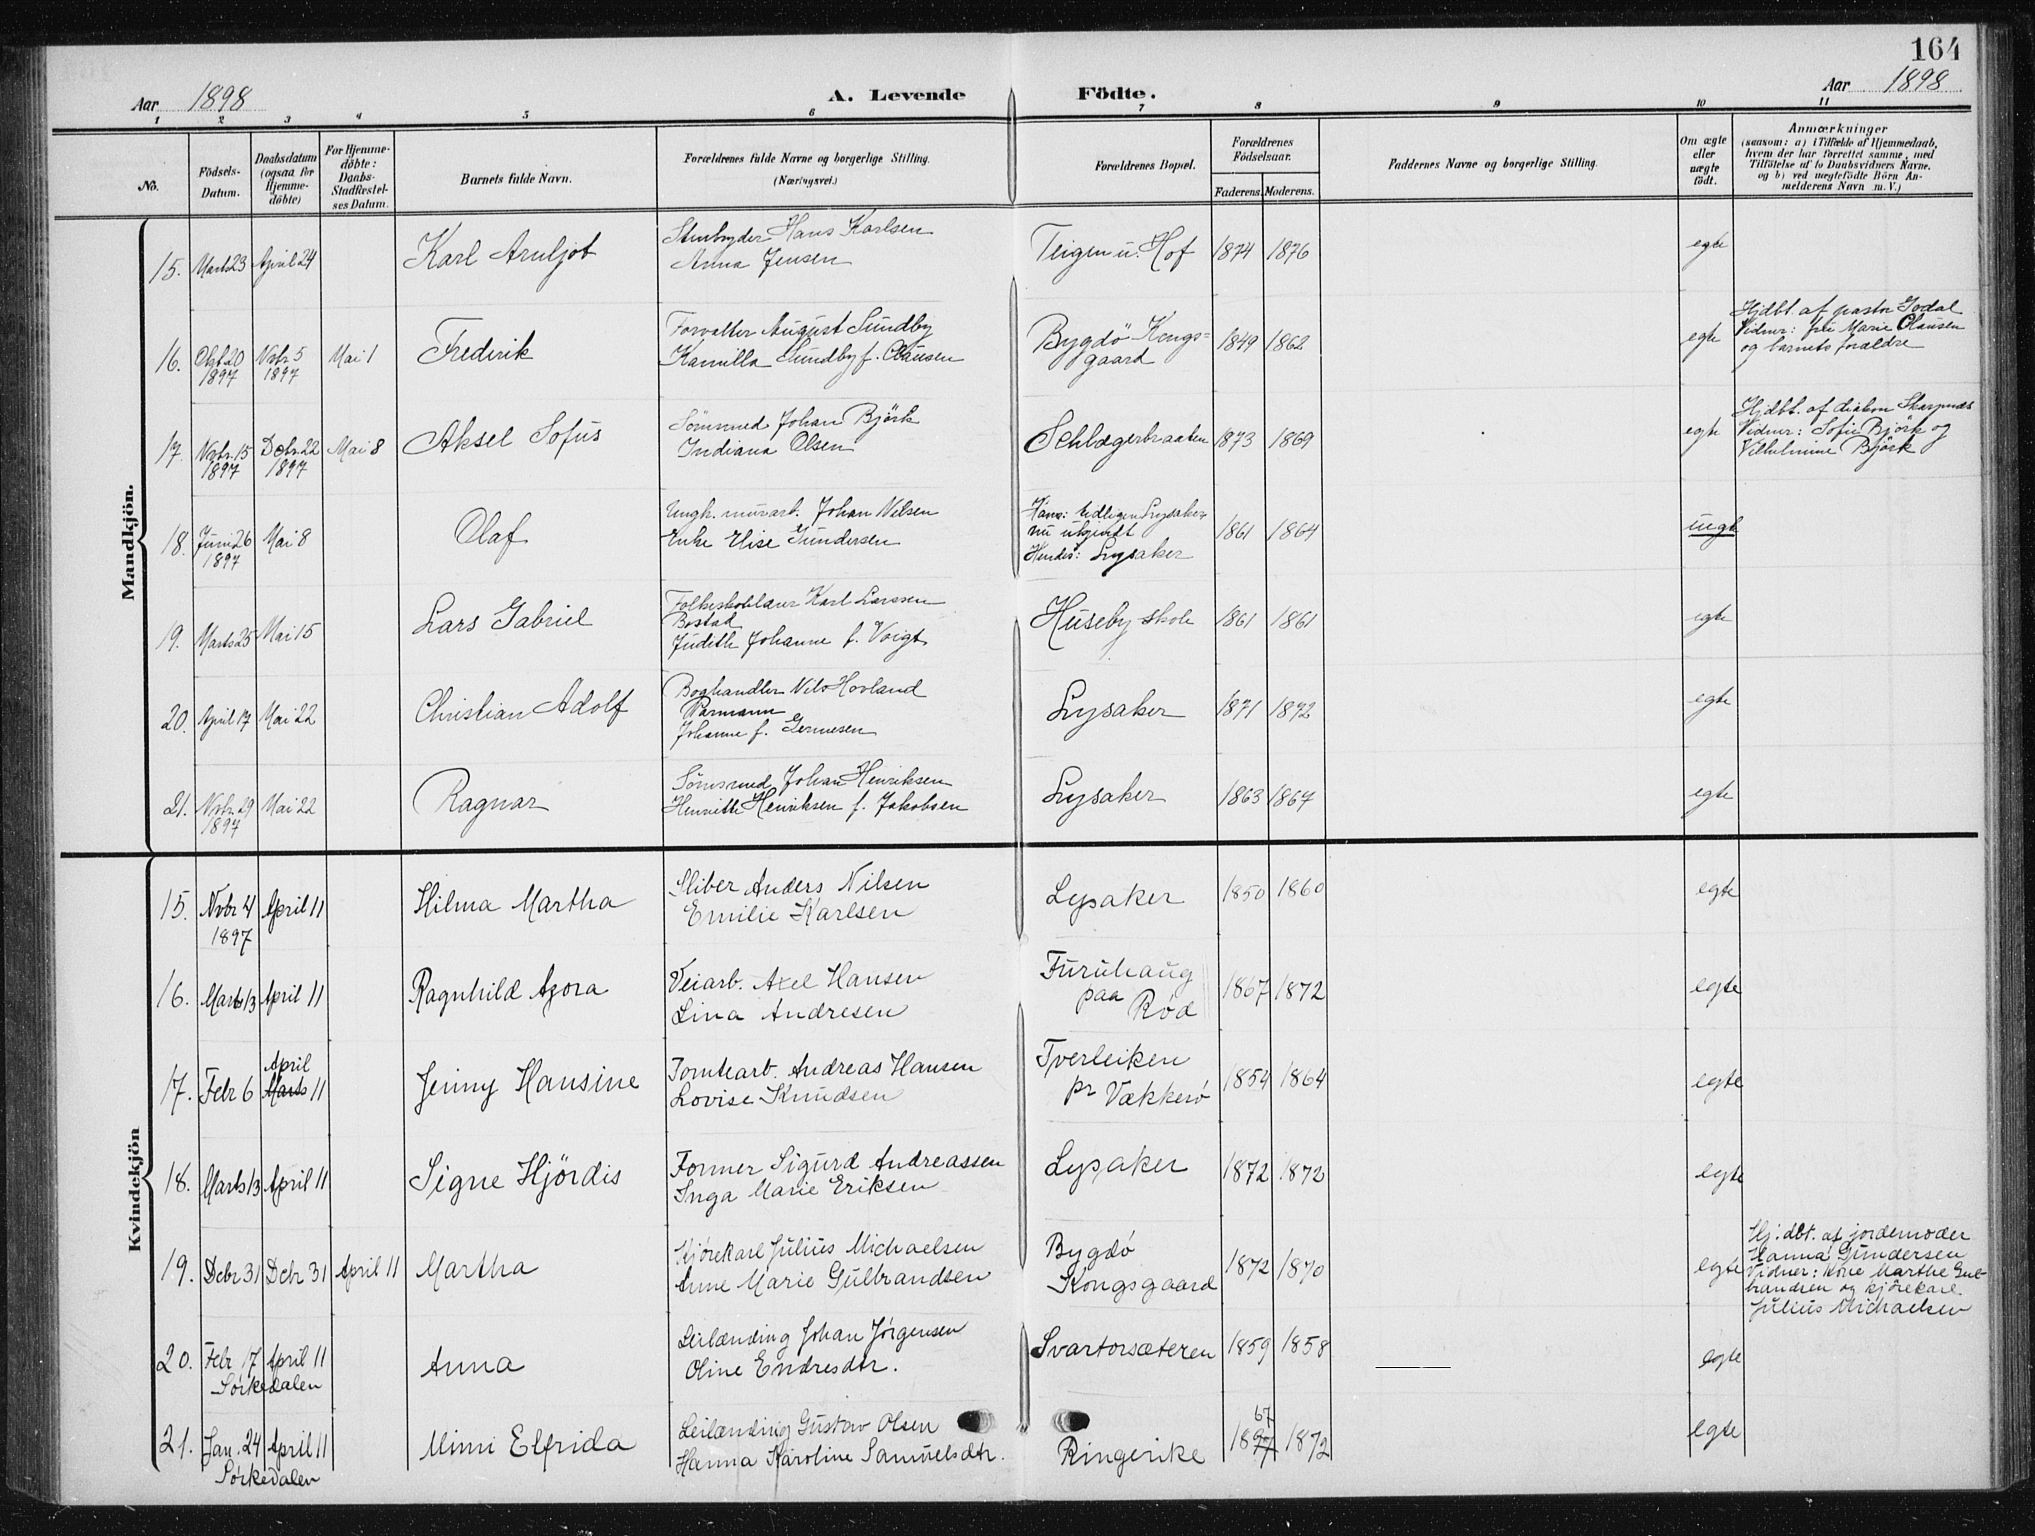 164
Aar 1898
A. Levende Födte.
Aar 1898
1 2 3 4 5 6 7 8 9 10 11
No.
Födsels-Datum.
Daabsdatum (ogsaa for Hjemme-döbte)
For Hjemme-döbte: Daabs-Stadfæstel-ses Datum.
Barnets fulde Navn.
Forældrenes fulde Navne og borgerlige Stilling. (Næringsvei.)
Forældrenes Bopæl.
Forældrenes Födselsaar.
Faderens. Moderens.
Faddernes Navne og borgerlige Stilling.
Om ægte eller uægte födt.
Anmærkninger
(saasom: a) i Tilfælde af Hjemmedaab, hvem der har forrettet samme, med Tilföielse af to Daabsvidners Navne, og b) ved uægtefödte Börn An-melderens Navn m. V.)
Mandkjön.
15. Marts 23 April 24 Karl Arnljot
Hans Karlsen
Anna Jensen
Teigen u. Hof 1874 1876 egte
16. Oktb 20 1897 Nvbr 5 1897 Mai 1 Frederik
Forvalter August Sundby
Kamilla Sundby f. Clausen
Bygdö Kongs=
gaard 1849 1862 egte
Hjdbt. af pastor Jodal
Vidner: frk Marie Clausen
og barnets forældre
17. Nvbr. 15 1897 Dcbr. 22 1897 Mai 8 Aksel Sofus
Sömsmed Johan Björk
Indiana Olsen
Schlægerbraaten 1873 1869 egte
Hjdbt. af diakon Skarpnæs
Vidner: Sofie Björk og
Vilhelmine Björk
18. Juni 26 1897 Mai 8 Olaf
Ungk. murarb. Johan Nilsen
Enke Elise Gundersen
Hans: tidligere Lysaker,
nu ubekjendt
Hendes: Lysaker 1861 1864 uegt
19. Marts 25 Mai 15 Lars Gabriel
Folkeskolelærer Karl Larssen
Bostad
Judith Johanne f. Voigt
Huseby skole 1861 1861 egte
20. April 17 Mai 22 Christian Adolf
Boghandler Nils Hovland
Parmann
Johanne f. Germesen
Lysaker 1871 1872 egte
21. Nvbr. 29 1897 Mai 22 Ragnar
Sömsmed Johan Henriksen
Henriette Henriksen f. Jakobsen
Lysaker 1863 1867 egte
Kvindekjön
15. Nvbr 4 1897 April 11 Hilma Martha
Sliber Anders Nilsen
Emilie Karlsen
Lysaker 1850 1860 egte
16. Marts 13 April 11 Ragnhild Azora
Veiarb. Axel Hansen
Lina Andresen
Furuhaug
paa Rød 1867 1872 egte
17. Febr 6 April Marts 11 Jenny Hansine
Tomtearb. Andreas Hansen
Lovise Knudsen
Tverleiken
pr Vækkerö 1854 1864 egte
18. Marts 13 April 11 Signe Hjördis
Former Sigurd Andreassen
Inga Marie Eriksen
Lysaker 1872 1872 egte
19. Dcbr 31 Dcbr 31 April 11 Martha
Kjörekarl Julius Michaelsen
Anne Marie Gulbrandsen
Bygdö
Kongsgaard 1872 1870 egte
Hj. dbt. af jordemoder
Hanna Gundersen
Vidner: Kone Marthe Gul-
brandsen og kjörekarl
Julius Michaelsen
20. Febr 17 April 11 Sörkedalen Anna
Leilænding Johan Jörgensen
Oline Endresdtr.
Svartorsæteren 1859 1858 egte
21. Jan. 24 April 11 Sörkedalen Mimi Elfrida
Leilænding Gustav Olsen
Hanna Karoline Samuelsdtr.
Ringerike 1897 67 1872 egte